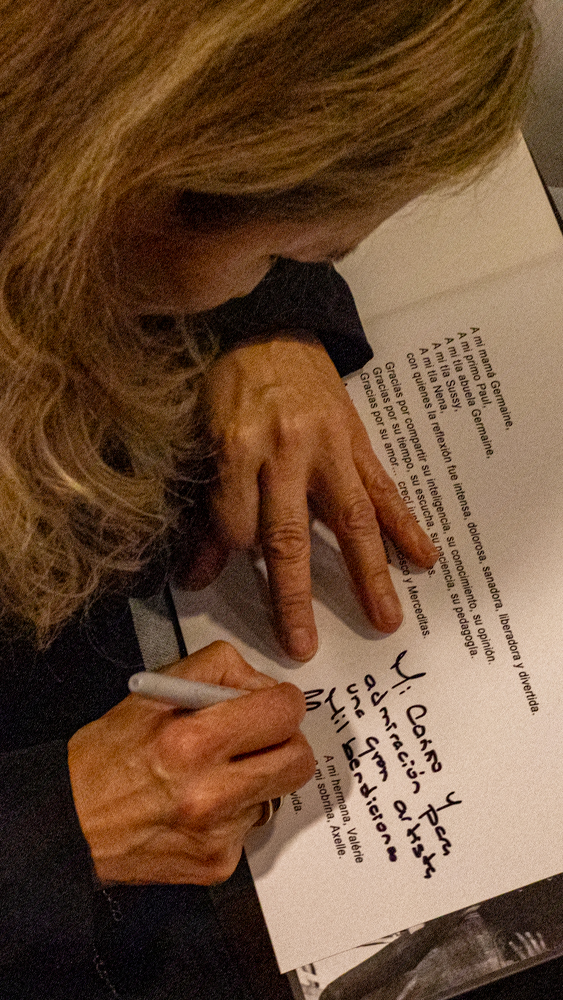 A mi mamá Germaine,
A mi primo Paul,
A mi tía abuela Germaine,
A mi tía Sussy,
A mi tía Nena,
con quienes la reflexión fue intensa, dolorosa, sanadora, liberadora y divertida.
Gracias por compartir su inteligencia, su conocimiento, su opinión.
Gracias por su tiempo, su escucha, su paciencia, su pedagogía.
Gracias por su amor... crecí
y Merceditas.
Mi
y para
admiración
una gran artista
Mil bendiciones
A mi hermana, Valérie
mi sobrina, Axelle.
vida.